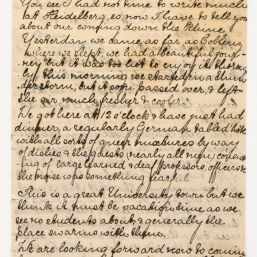 You see I had not time to write much
at Heidelberg, so now I have to tell you
about our coming down the Rhine
Yesterday we came as far as Coblenz
where we slept, we had a beautiful jour
ney but it was too hot to enjoy it thoroly
by this morning we started in a thun
derstorm, but it soon passed over, & left
the air much fresher & cooler.
We got here at 12 o'clock & have just had
dinner, a regularly German table d'hôte
with all sorts of queer mixtures by way
of dishes & the guests nearly all men, consis
ting of large bearded professors, officers &
the noise was something fearful.
This is a great University town but we
think it must be vacation time as we
see no students about, & generally the
place swarms with them.
We are looking forward now to coming